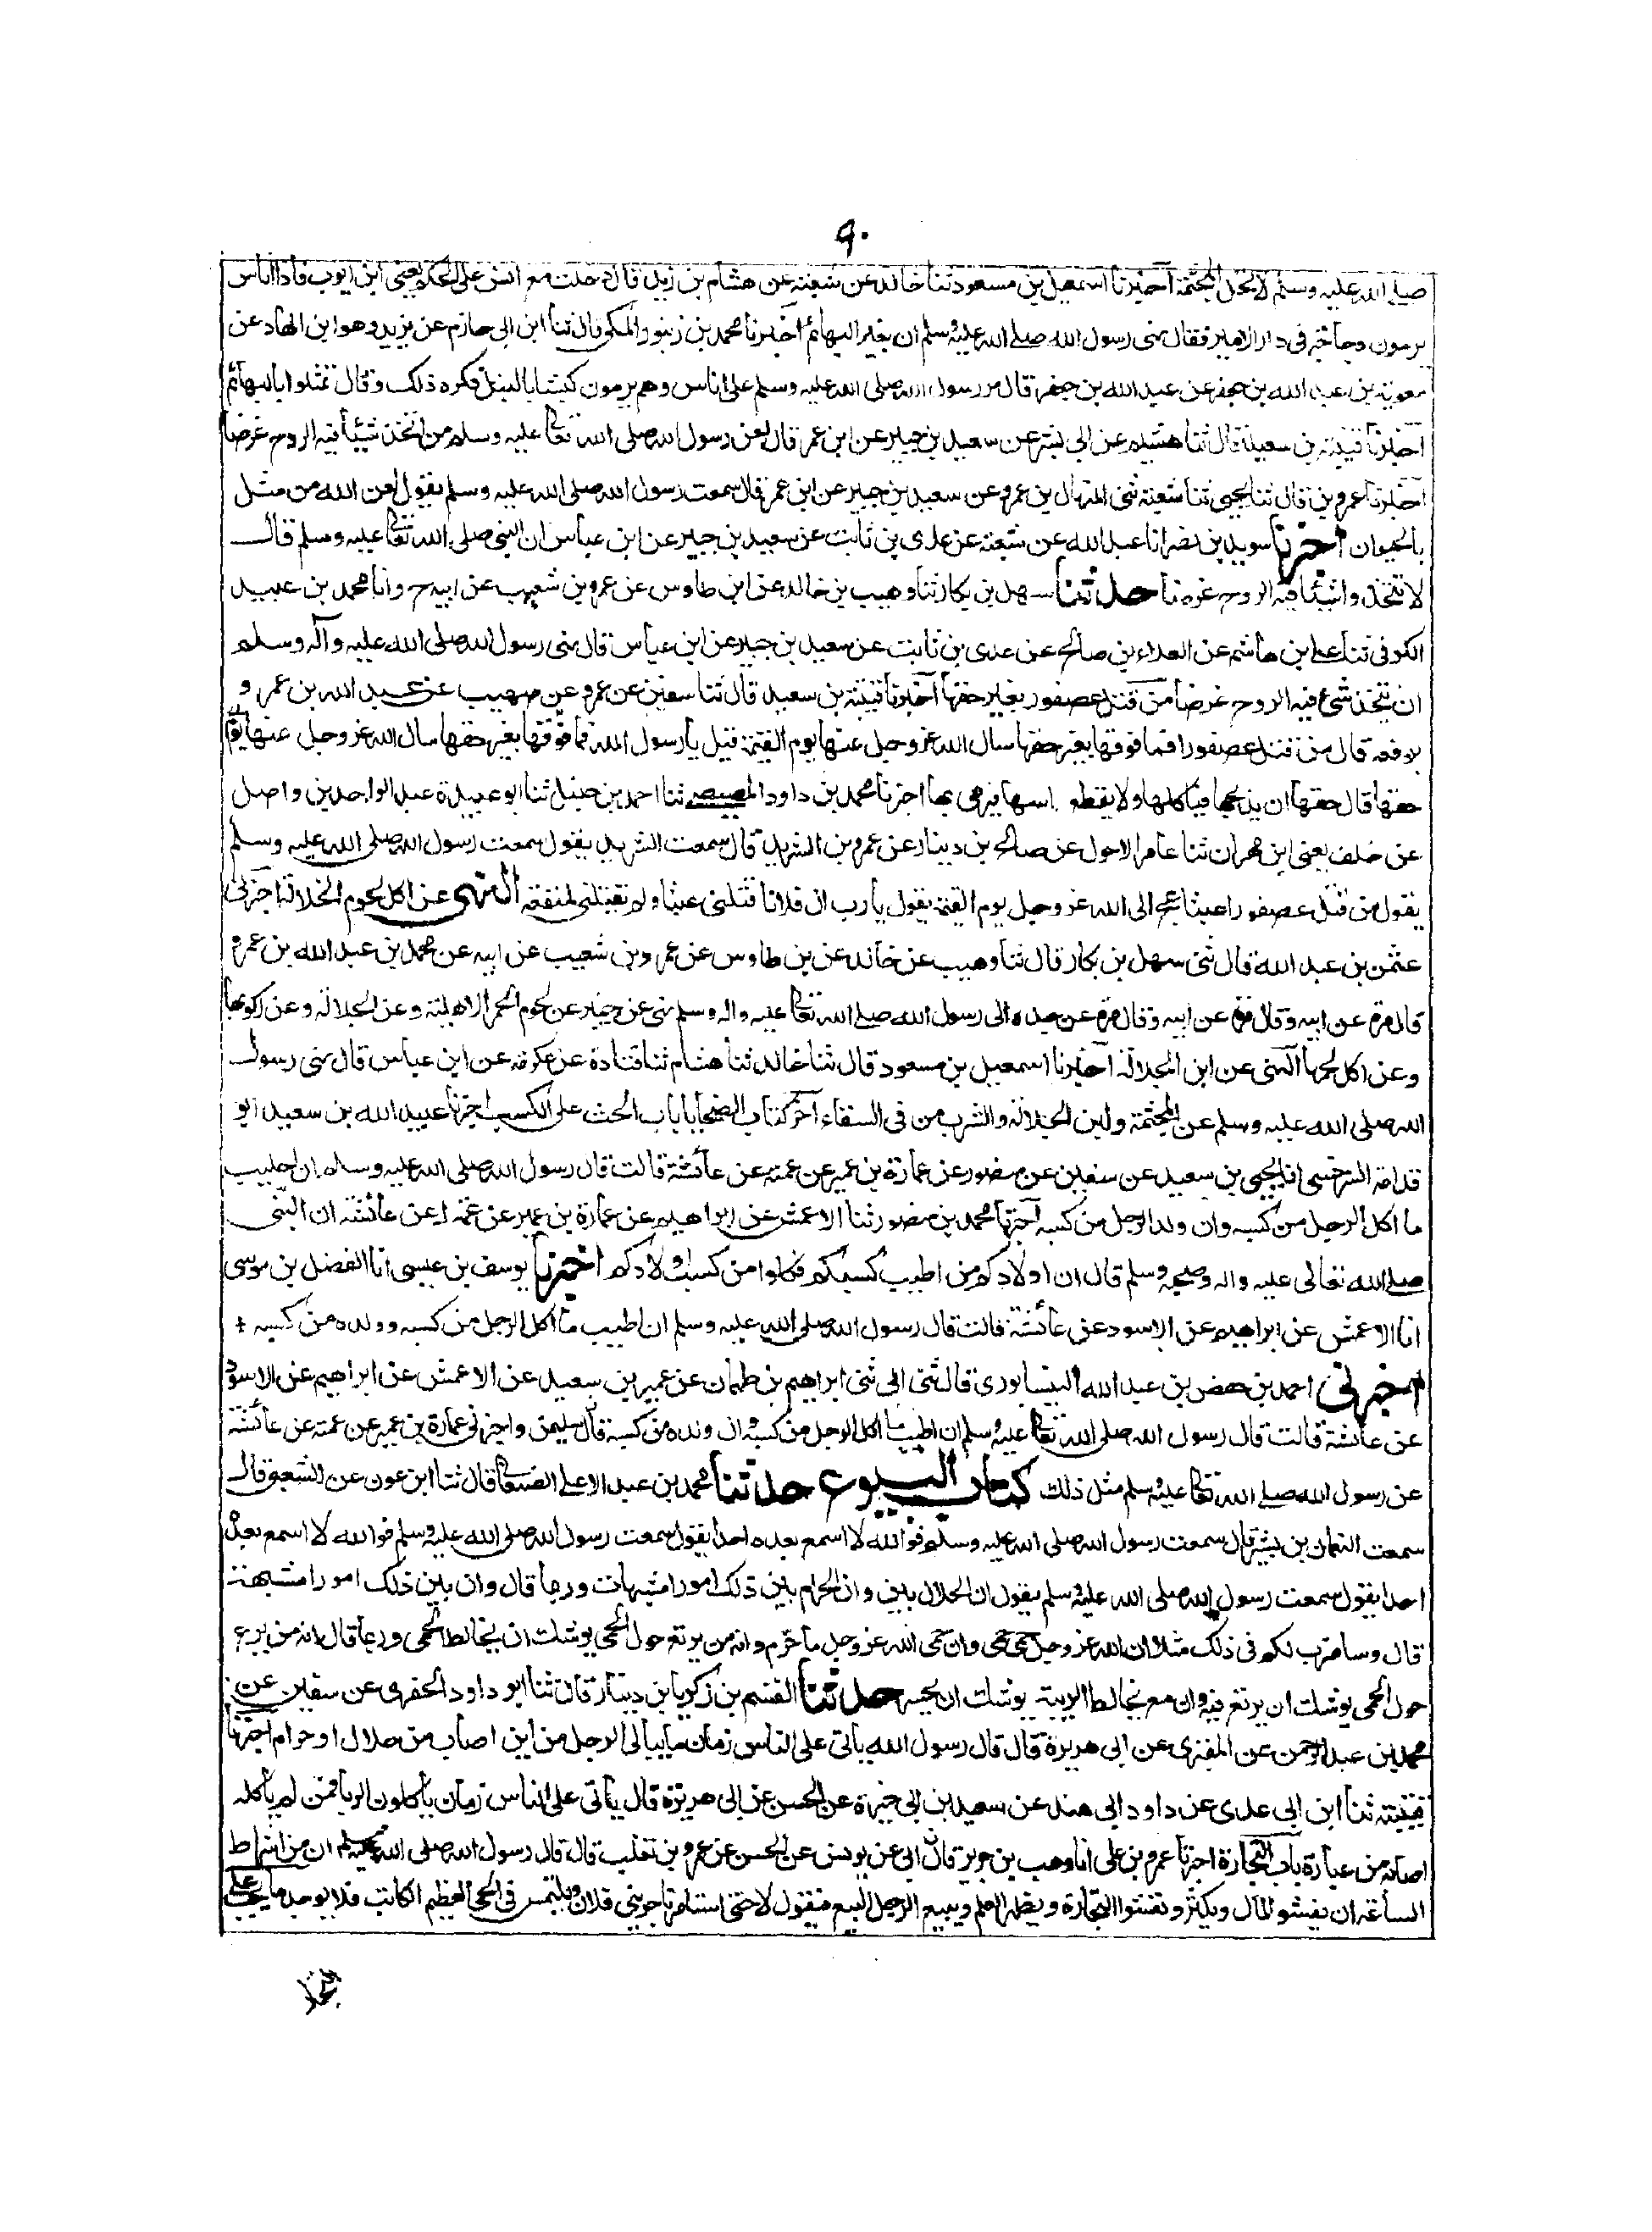 ٩٠
صلے الله عليه وسلم لا تحل المجثمة آخبرنا اسمعيل بن مسعود ثنا خالد عن شعبة عن هشام بن زيد قال دخلت مع انس على الحكم يعنى ابن ايوب فاذا اناس
يرمون دجاجة فى دار الامير فقال نهى رسول الله صلے الله عليه وسلم ان تصبر البهائم اخبرنا محمد بن زنبور المكى قال ثنا ابن ابى حازم عن يزيد وهو ابن الهاد عن
معوية بن عبد الله بن جعفر عن عبد الله بن جعفر قال مر رسول الله صلى الله عليه وسلم على اناس وهم يرمون كبشا بالنبل فكره ذلك وقال لا تمثلوا بالبهائم
آخبرنا قتيبة بن سعيد قال ثنا هشيم عن ابى بشر عن سعيد بن جبير عن ابن عمر قال لعن رسول الله صلى الله تعالى عليه وسلم من اتخذ شيئا فيه الروح غرضا
آخبرنا عمرو بن قال ثنا يحيى ثنا شعبة ثنى المنهال بن عمرو عن سعيد بن جبير عن ابن عمر قال سمعت رسول الله صلى الله عليه وسلم يقول لعن الله من مثل
بالحيوان اخبرنا سويد بن نصر انا عبد الله عن شعبة عن عدى بن ثابت عن سعيد بن جبير عن ابن عباس ان النبى صلى الله تعالى عليه وسلم قال
لا تتخذوا شيئا فيه الروح غرضا حدثنا سهل بن بكار ثنا وهيب بن خالد عن ابن طاوس عن عمرو بن شعيب عن ابيه ح وانا محمد بن عبيد
الكوفى ثنا على بن هاشم عن العلاء بن صالح عن عدى بن ثابت عن سعيد بن جبير عن ابن عباس قال نهى رسول الله صلى الله عليه وآله وسلم
ان يتخذ شئ فيه الروح غرضا من قتل عصفور بغير حقها آخبرنا قتيبة بن سعيد قال ثنا سفين عن عمرو عن صهيب عن عبد الله بن عمرو
يرفعه قال من قتل عصفورا فما فوقها بغير حقها سال الله عز وجل عنها يوم القيمة قيل يا رسول الله فما فوقها بغير حقها سال الله عز وجل عنها
حقها قال حقها ان يذبحها فياكلها ولا يقطع راسها فيرمى بها اخبرنا محمد بن داود المصيصے ثنا احمد بن حنبل ثنا ابو عبيدة عبد الواحد بن واصل
عن خلف يعنى ابن مهران ثنا عامر الاحول عن صالح بن دينار عن عمرو بن الشريد قال سمعت الشريد يقول سمعت رسول الله صلى الله عليه وسلم
يقول من قتل عصفورا عبثا عج الى الله عز وجل يوم القيمة يقول يا رب ان فلانا قتلنى عبثا ولم يقتلنى لمنفعة النهى عن اكل لحوم الجلالة اخبرنى
عثمن بن عبد الله قال ثنى سهل بن بكار قال ثنا وهيب عن خالد عن بن طاوس عن عمرو بن شعيب عن ابيه عن محمد بن عبد الله بن عمرو
قال مرة عن ابيه وقال مرة عن ابيه وقال مرة عن جده الى رسول الله صلے الله تعالى عليه واله وسلم نهى عن خيبر عن لحوم الحمر الاهلية وعن الجلالة وعن ركوبها
وعن اكل لحمها النهى عن ابن الجلالة آخبرنا اسمعيل بن مسعود قال ثنا خالد ثنا هشام ثنا قتادة عن عكرمة عن ابن عباس قال نهى رسول
الله صلى الله عليه وسلم عن المجثمة ولبن الجلالة والشرب من فى السقاء آخر كتاب الضحايا باب الحث على الكسب اخبرنا عبيد الله بن سعيد ابو
قدامة السرخسى انا يحيى بن سعيد عن سفين عن منصور عن عمارة بن عمير عن عمته عن عائشة قالت قال رسول الله صلى الله عليه وسلم ان اطيب
ما اكل الرجل من كسبه وان ولد الرجل من كسبه آخبرنا محمد بن منصور ثنا الاعمش عن ابراهيم عن عمارة بن عمير عن عمة له عن عائشة ان النبى
صلے الله تعالى عليه واله وصحبه وسلم قال ان اولادكم من اطيب كسبكم فكلوا من كسب اولادكم اخبرنا يوسف بن عيسى انا الفضل بن موسى
انا الاعمش عن ابراهيم عن الاسود عن عائشة قالت قال رسول الله صلى الله عليه وسلم ان اطيب ما اكل الرجل من كسبه وولده من كسبه
اخبرنى احمد بن حفص بن عبد الله النيسابورى قال ثنى ابى ثنى ابراهيم بن طهمان عن عمير بن سعيد عن الاعمش عن ابراهيم عن الاسود
عن عائشة قالت قال رسول الله صلى الله تعالى عليه وسلم ان اطيب ما اكل الرجل من كسبه وان ولده من كسبه قال سليمن واخبرنى عمارة بن عمير عن عمته عن عائشة
عن رسول الله صلے الله تعالى عليه وسلم مثل ذلك كتاب البيوع حدثنا محمد بن عبد الاعلى الصنعانى قال ثنا ابن عون عن الشعبى قال
سمعت النعمان بن بشير قال سمعت رسول الله صلى الله عليه وسلم فوالله لا اسمع بعده احدا يقول سمعت رسول الله صلى الله عليه وسلم فوالله لا اسمع بعده
احدا يقول سمعت رسول الله صلى الله عليه وسلم يقول ان الحلال بين وان الحرام بين وان بين ذلك امورا مشبهات وربما قال وان بين ذلك امورا مشتبهة
قال وساضرب لكم فى ذلك مثلا ان الله عز وجل حمى حمى وان حمى الله عز وجل ما حرم وانه من يرتع حول الحمى يوشك ان يخالط الحمى وربما قال انه من يرع
حول الحمى يوشك ان يرتع فيه وان مع يخالط الريبة يوشك ان يجسر حدثنا القسم بن زكريا بن دينار قال ثنا ابو داود الحفرى عن سفين عن
محمد بن عبد الرحمن عن المقبرى عن ابى هريرة قال قال رسول الله ياتى على الناس زمان ما يبالى الرجل من اين اصاب من حلال او حرام اخبرنا
قتيبة ثنا ابن ابى عدى عن داود ابى هند عن سعيد بن ابى خيرة عن الحسن عن ابى هريرة قال ياتى على الناس زمان ياكلون الربا فمن لم ياكله
اصابه من غباره باب التجارة اخبرنا عمرو بن على انا وهب بن جرير قال ثنى ابى عن يونس عن الحسن عن عمرو بن تغلب قال قال رسول الله صلى الله عليه وسلم ان من اشراط
الساعة ان يفشو المال ويكثر وتفشوا التجارة ويظهر العلم ويبيع الرجل البيع فيقول لا حتى استامر تاجر بنى فلان ويلتمس فى الحى العظيم الكاتب فلا يوجد ما يجب على